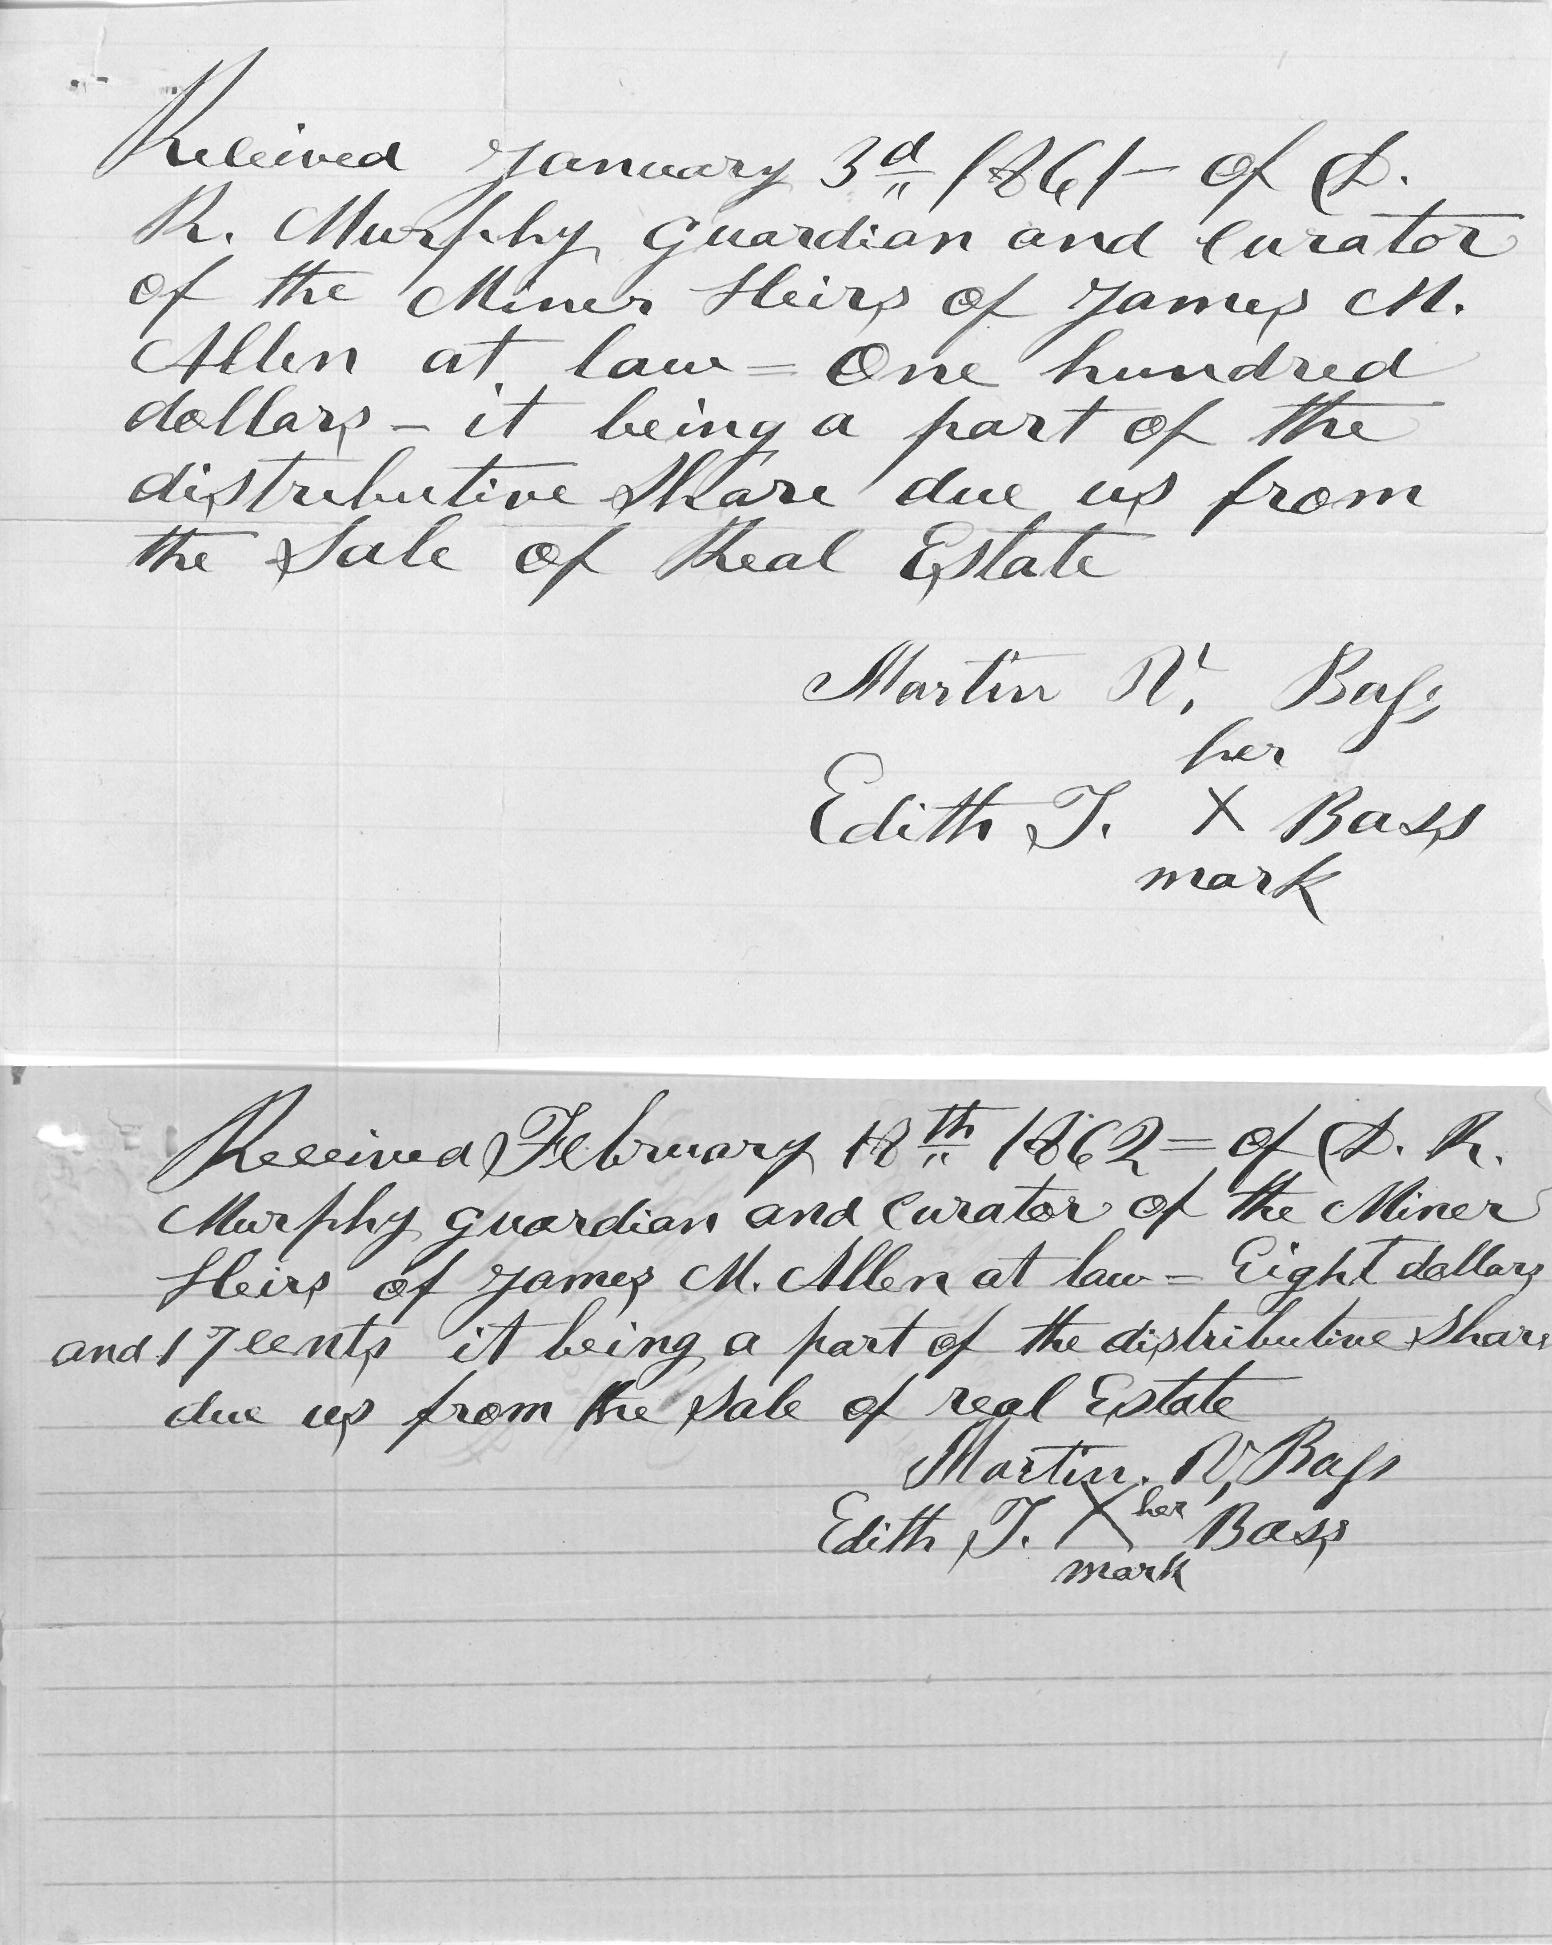 Received January 3d 1861 - of D.
R. Murphy guardian and Curator
of the Miner Heirs of James M.
Allen at law = One hundred
dollars - it being a part of the
distributive Share due us from
the Sale of Real Estate
Martin V. Bass
her
Edith T. X Bass
mark
Received February 18th 1862 = of D. R.
Murphy guardian and Curator of the Miner
Heirs of James M. Allen at law = Eight dollars
and 17 cents it being a part of the distributive Share
due us from the Sale of real Estate
Martin. V. Bass
Edith T. X her Bass
mark